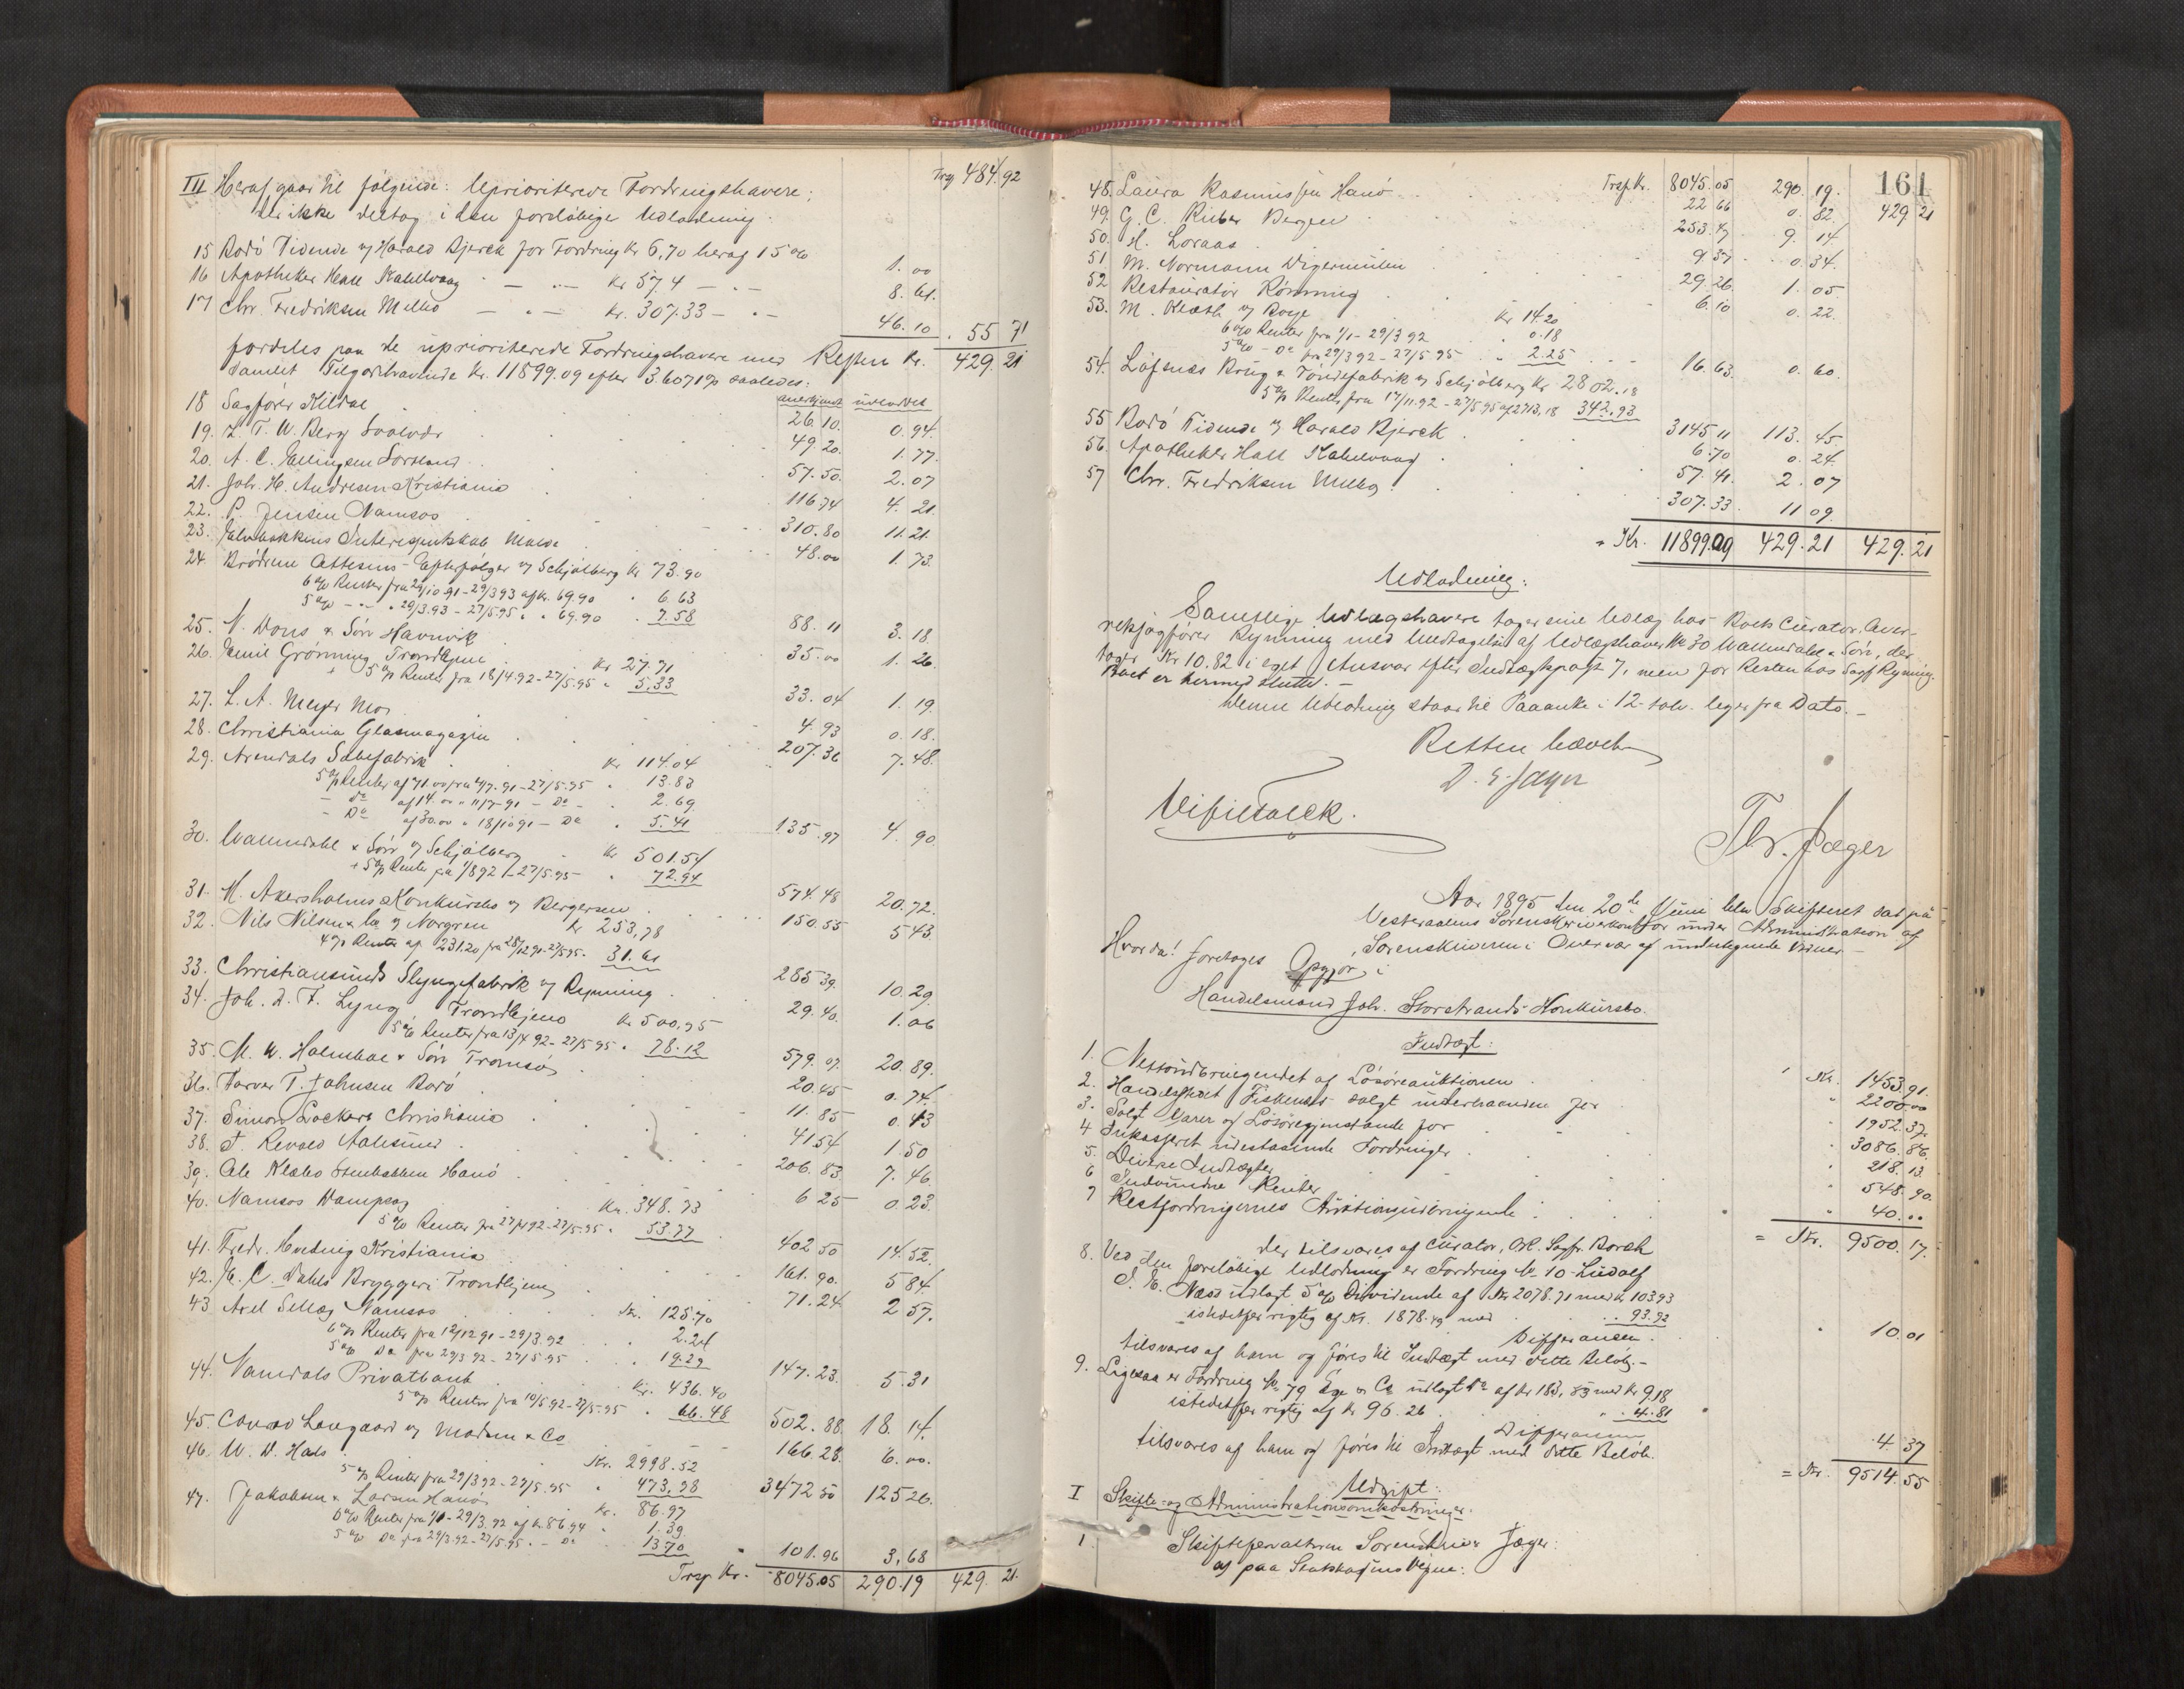 Trsp 484.92
III Heraf gaar til følgende: Uprioriterede Fordringshavere,
der ikke deltog i den foreløbige Udlodning.
15 Bodö Tidende v/ Harald Bjerck for Fordring Kr 6,70 heraf 15 % 1.00
16 Apotheker Hall Kabelvaag — " — Kr 57.4 — " — 8.61.
17 Chr. Fredriksen Melbo — " — Kr. 307.33 — " — 46.10 . 55 71
fordeles paa de uprioriterede Fordringshavere med Resten Kr. 429.21
samlet Tilgodehavende Kr. 11899.09 efter 3.6071 % saaledes:
anerkjendt udloddet
18 Sagfører Kildal 26.10. 0.94.
19. L. T. W. Berg Svolvær 49.20. 1.77.
20. A. C. Ellingsen Sortland 57.50. 2.07
21. Joh. H. Andresen Kristiania 116.74 4.21.
22. P. Jensen Namsos 310.80 11.21.
23. Interessentskab Molde 48.00 1.73.
24. Brödrene Efterfølger v/ Schjølberg Kr 73.90
6 % Renter fra 29/10 91 - 29/3 93 af Kr. 69.90 " 6.63
5 % — " — 29/3.93 - 27/5.95 " " 69.90 . 7.58 88.11 3.18
25. N. Dons & Sön Havnvik 35.00 1.26.
26. Emil Grönning Trondhjem Kr 27.71
+ 5 % Renter fra 18/4.92 - 27/5.95 " 5.33 33.04 1.19.
27. L. A. Meyer Mo 4.93 0.18.
28. Christiania Glasmagazin 207.36 7.48.
29. Arendals Kr 114.04
5 % Renter af 71.00 fra 91 - 27/5.95 " 13.83
— Do af 14.00 " 91 — Do — . 2.69
— Do af 30.00 " 18/10 91 — Do " 5.41 135.97 4.90
30. Wallendahl & Sön v/ Schjölberg Kr 501.54
+ 5 % Renter fra 1/8 92 - 27/5.95 " 72.94 574.48 20.72.
31. M. Akersholms Konkursbo v/ Bergersen 150.55 5 43.
32. Nils Nilsen & Co v/ Norgren Kr 253,78
4 % Renter af 231.20 fra 28/12 91 - 27/5 95. 31.61 285 39. 10.29.
33. Christiansunds Slyngefabrik v/ Rynning 29.40. 1.06
34. Joh. D. F. Lyng Trondhjem Kr 500,95
5 % Renter fra 13/4 92 - 27/5 95 " 78.12 579.07. 20.89.
35. M. W. Holmboe & Sön Tromsö 20.45 0.74.
36. Farver T. Johnsen Bodö 11.85 0.43
37. Simon Lockert Christiania 41 54 1.50
38. F. Revold Aalesund 206.83. 7.46.
39. Ole Klæbo Stenbakken Hanö 6 25 0.23.
40. Namsos Dampsag Kr. 348.73
5 % Renter fra 27/4 92 - 27/5.95 " 53.77 402 50 14.52.
41. Fredr. Kristiania 161.90. 5 84.
42. E. C. Dahls Bryggeri Trondhjem 71.24 2 57.
43 Axel Sellæg Namsos Kr. 125.70
6 % Renter fra 12/12 91 - 29/3.92 . 2.24
5 % Do fra 29/3 92 - 27/5.95 . 19.29 147.23. 5.31
44. Namdals Privatbank Kr. 436.40
5 % Renter fra 10/5.92 - 27/5.95 " 66.48 502.88. 18.14.
45. Conrad Langaard v/ Madsen & Co 166.28. 6.00.
46. W. D. Hals Kr. 2998.52
5 % Renter fra 29/3 92 - 27/5.95 " 473.98 3472 50 125 26.
47. Jakobsen & Larsen Hanö Kr. 86.97
6 % Renter fra 1/1 - 29/3.92 af Kr. 86.94 " 1.39.
5 % Do fra 29/3.92 - 27/5.95 " — Do 13.70 101.96 3,68
Trsp. Kr. 8045.05 290.19 429.21.
161
Trsp. Kr. 8045.05 290.19. 429 21
48. Laura Rasmussen Hanö 22 66 0.82.
49. G. C. Rieber Bergen 253.47 9.14
50. H. Loraas 9 37 0.34.
51 M. Normann Digermulen 29.26. 1.05
52 Restauratör Rönning 6.10 0.22.
53. M. v/ Boye Kr 14.20
6 % Renter fra 1/1 - 29/3 92 . 0.18
5 % — Do fra 29/3 92 - 27/5 95 . 2.25 16.63. 0.60.
54. Löfsnæs Brug & Töndefabrik v/ Schjölberg Kr 2802.18
5 % Renter fra 17/11.92 - 27/5 95 af 2713,18 342,93 3145 11 113.45.
55 Bodö Tidende v/ Harald Bjerck 6.70 0.24.
56. Apotheker Hall Kabelvaag 57.41. 2.07
57 Chr. Fredriksen Melbo 307.33. 11 09.
= Kr. 11899.09 429.21 429.21
Udlodning:
Samtlige Udlægshavere tager sine Udlæg hos Boets Curator, Over-
retssagfører Rynning med Undtagelse af Udlægshaver No 30 Wallendahl & Sön, der
tager Kr 10,82 i eget Ansvar efter Indtægtspost 7, men for Resten hos Sagf. Rynning.
Boet er hermed sluttet. —
Denne Udlodning staar til Paaanke i 12 - tolv - Uger fra Dato. —
Retten hævet
D. E. Jæger
Thr. Jæger
Aar 1895 den 20de Juni blev Skifteret sat på
Vesteraalens Sorenskriverkontor under Administration af
Sorenskriveren i Overvær af undertegnede Vidner —
Hvorda! foretoges Opgjør i
Handelsmand Joh. Storstrands Konkursbo.
Indtægt:
1. Nettoudbringendet af Lösöreauktionen " Kr. 1453.91.
2. Handelsstedet Fiskenes solgt underhaanden for " 2200.00
3. Solgt Varer og Lösöregjenstande for " 1952.37.
4 Inkasseret udestaaende Fordringer " 3086.86.
5. Diverse Indtægter " 218.13.
6 Indvundne Renter " 548.90.
7 Restfordringernes Auktionsudbringende " 40.00
der tilsvares af Curator, Orl. Sagfr. Borch = Kr. 9500.17.
8. Ved den foreløbige Udlodning er Fordring No 10 Ludolf
J. Næss udlagt 5 % Dividende af Kr 2078.71 med Kr 103.93
istedetfor rigtig af Kr. 1878.49 med . . 93.92
Differansen.
tilsvares af ham og føres til Indtægt med dette Beløb. — " 10.01
9. Ligesaa er Fordring No 79 Ege & Co udlagt Do af Kr 183,83 med Kr 9.18
istedetfor rigtig af Kr 96.26 " . 4.81
Differansen
tilsvares af ham og føres til Indtægt med dette Beløb. 4.37
= Kr. 9514.55
Udgift:
I Skifte- og Administrationsomkostninger:
1 Skifteforvalteren Sorenskriver Jæger:
a) paa Statskassens Vegne: